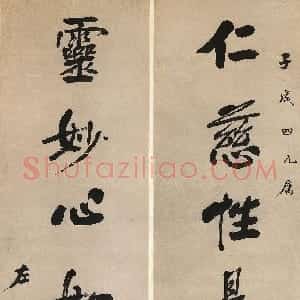 子成四兄屬
仁慈性
靈妙心
左
Shufaziliao.com